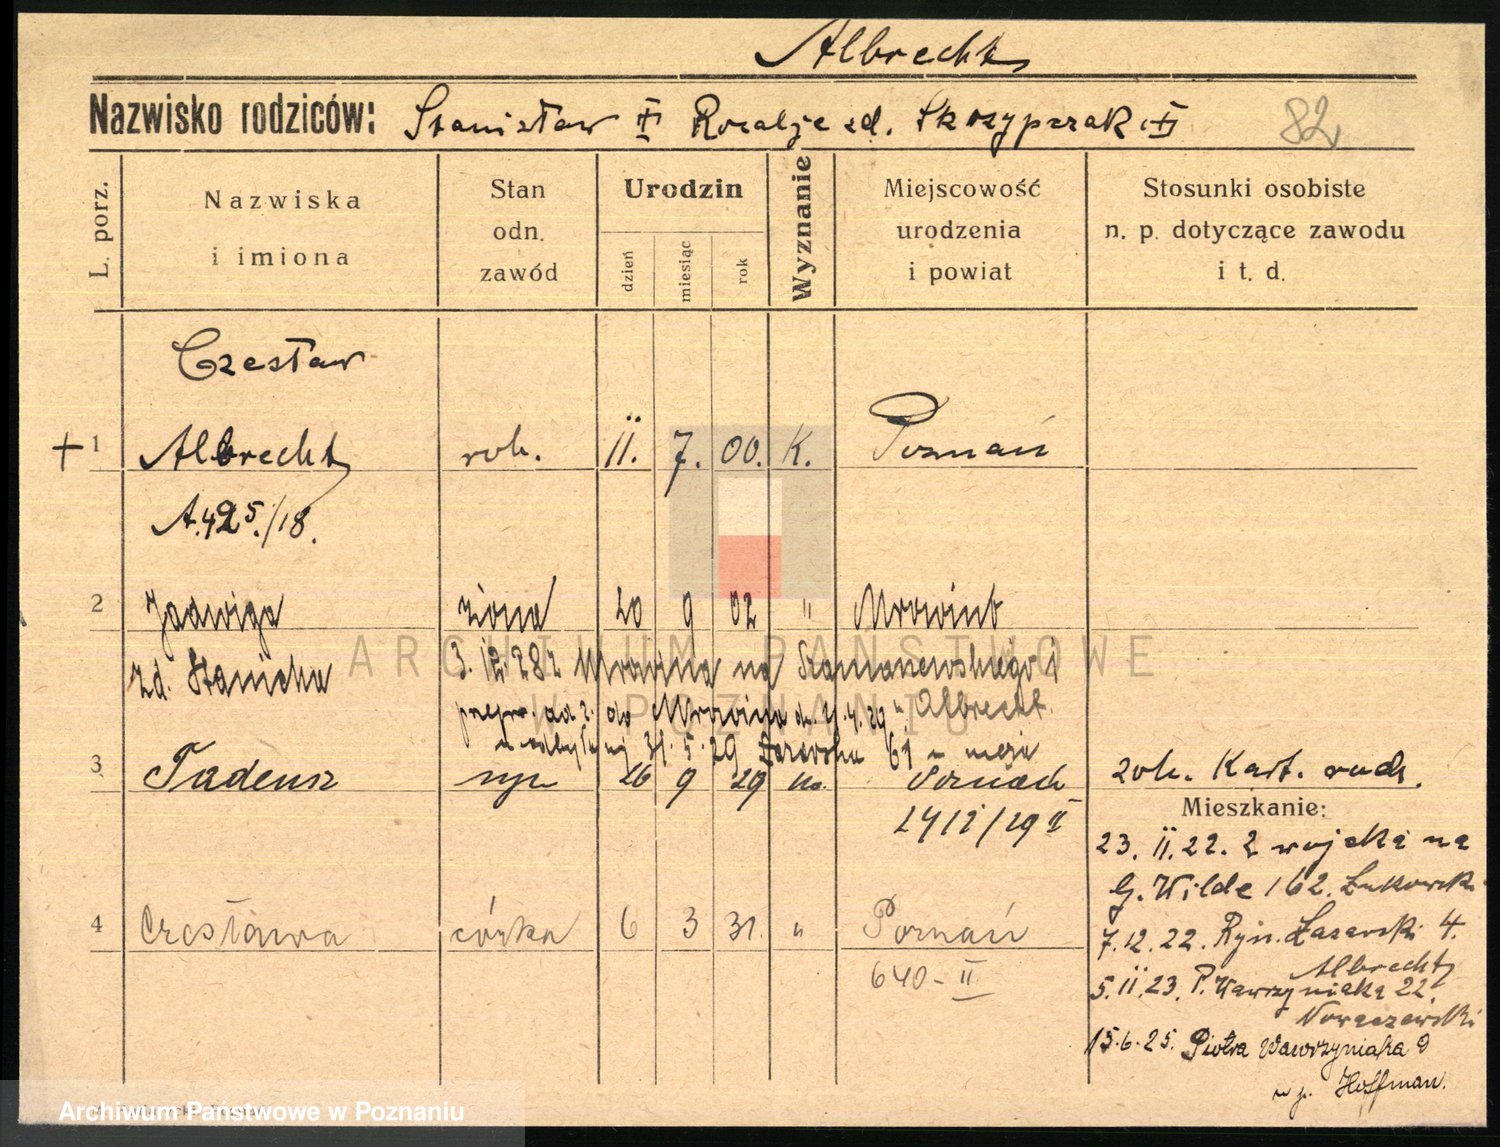 Albrecht
Nazwisko rodziców: Stanisław Rozalje zd. Skrzypczak
82
L. porz.
Nazwiska
i imiona
Stan
odn.
zawód
Urodzin
dzień
miesiąc
rok
Wyznanie
Miejscowość
urodzenia
i powiat
Stosunki osobiste
n. p. dotyczące zawodu
i t. d.
Czesław
+ 1 Albrecht rob. 11. 7. 00. K. Poznań
A.425./18.
2 Jadwiga żona 20 9 02 " Mrowino
zd. Stanicka 3. 12. 28 z Mrowina na Szamarzewskiego 1
do Mrowina 4.29 Albrecht
31.5.29 61
3 Tadeusz syn 26 9 29 Poznań rob. Kart.
1412/29 II
Mieszkanie:
23. 11. 22. z wojska na
G. Wilde 162. Bukowski
4 Czesława córka 6 3 31. " Poznań
640 - II
7.12.22. Ryn. Łazarski 4.
Albrecht
5.11.23. P. Wawrzyniaka 22.
Nowaczewski
15.6.25. Piotra Wawrzyniaka 9
u p. Hoffman.
ARCHIWUM PAŃSTWOWE
W POZNANIU
Archiwum Państwowe w Poznaniu